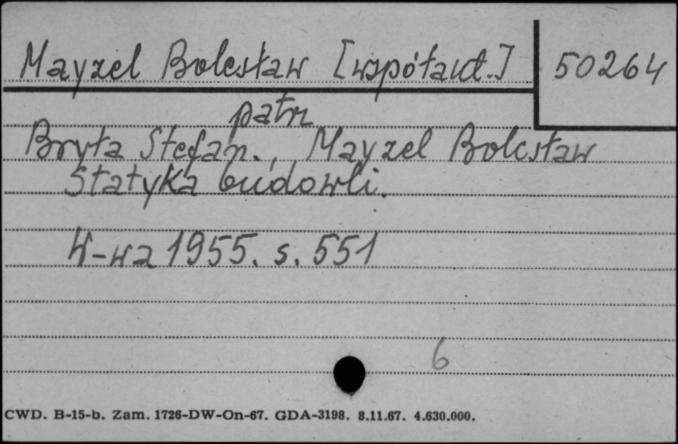 Mayzel Bolesław [współaut.]
50264
patrz
Bryła Stefan., Mayzel Bolesław
Statyka budowli.
W-wa 1955. s. 551
6
CWD. B-15-b. Zam. 1726-DW-On-67. GDA-3198. 8.11.67. 4.630.000.